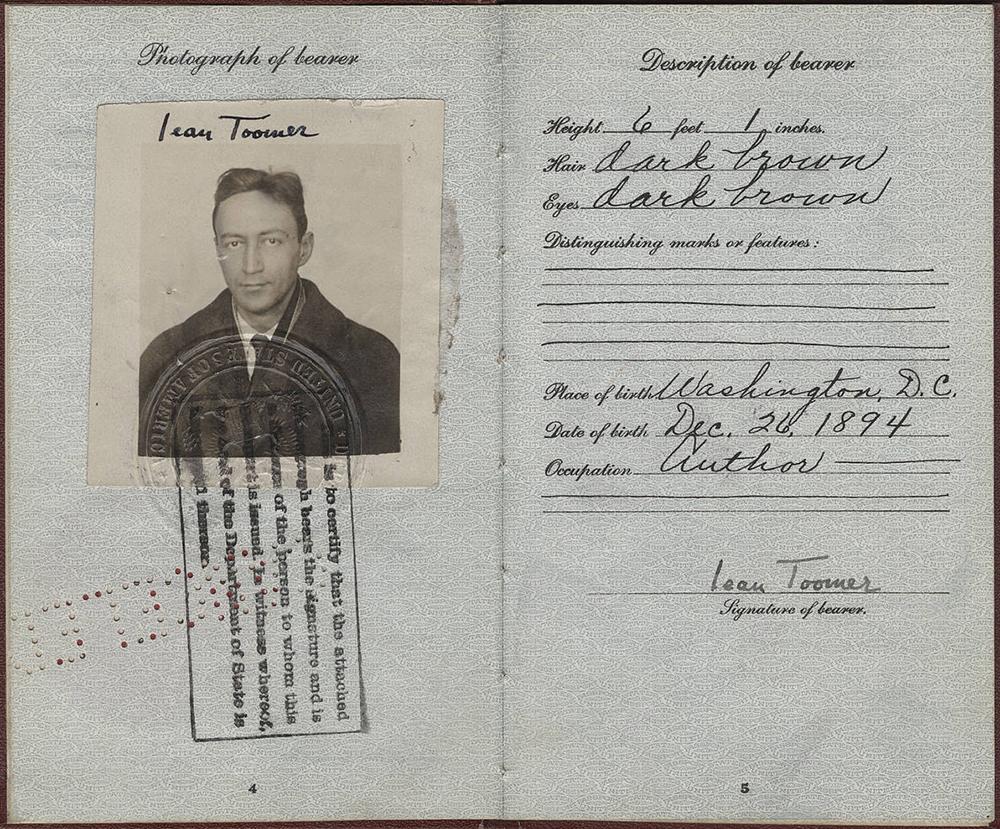 Photograph of bearer
Jean Toomer
UNITED STATES OF AMERICA
is to certify that the attached
bears the signature and is
of the person to whom this
is issued. In witness whereof,
of the Department of State is
thereon.
4
Description of bearer
Height 6 feet 1 inches.
Hair dark brown
Eyes dark brown
Distinguishing marks or features:
Place of birth Washington, D.C.
Date of birth Dec. 26, 1894
Occupation Author
Jean Toomer
Signature of bearer.
5